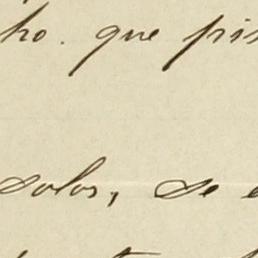 ho. que pis
solos, se e